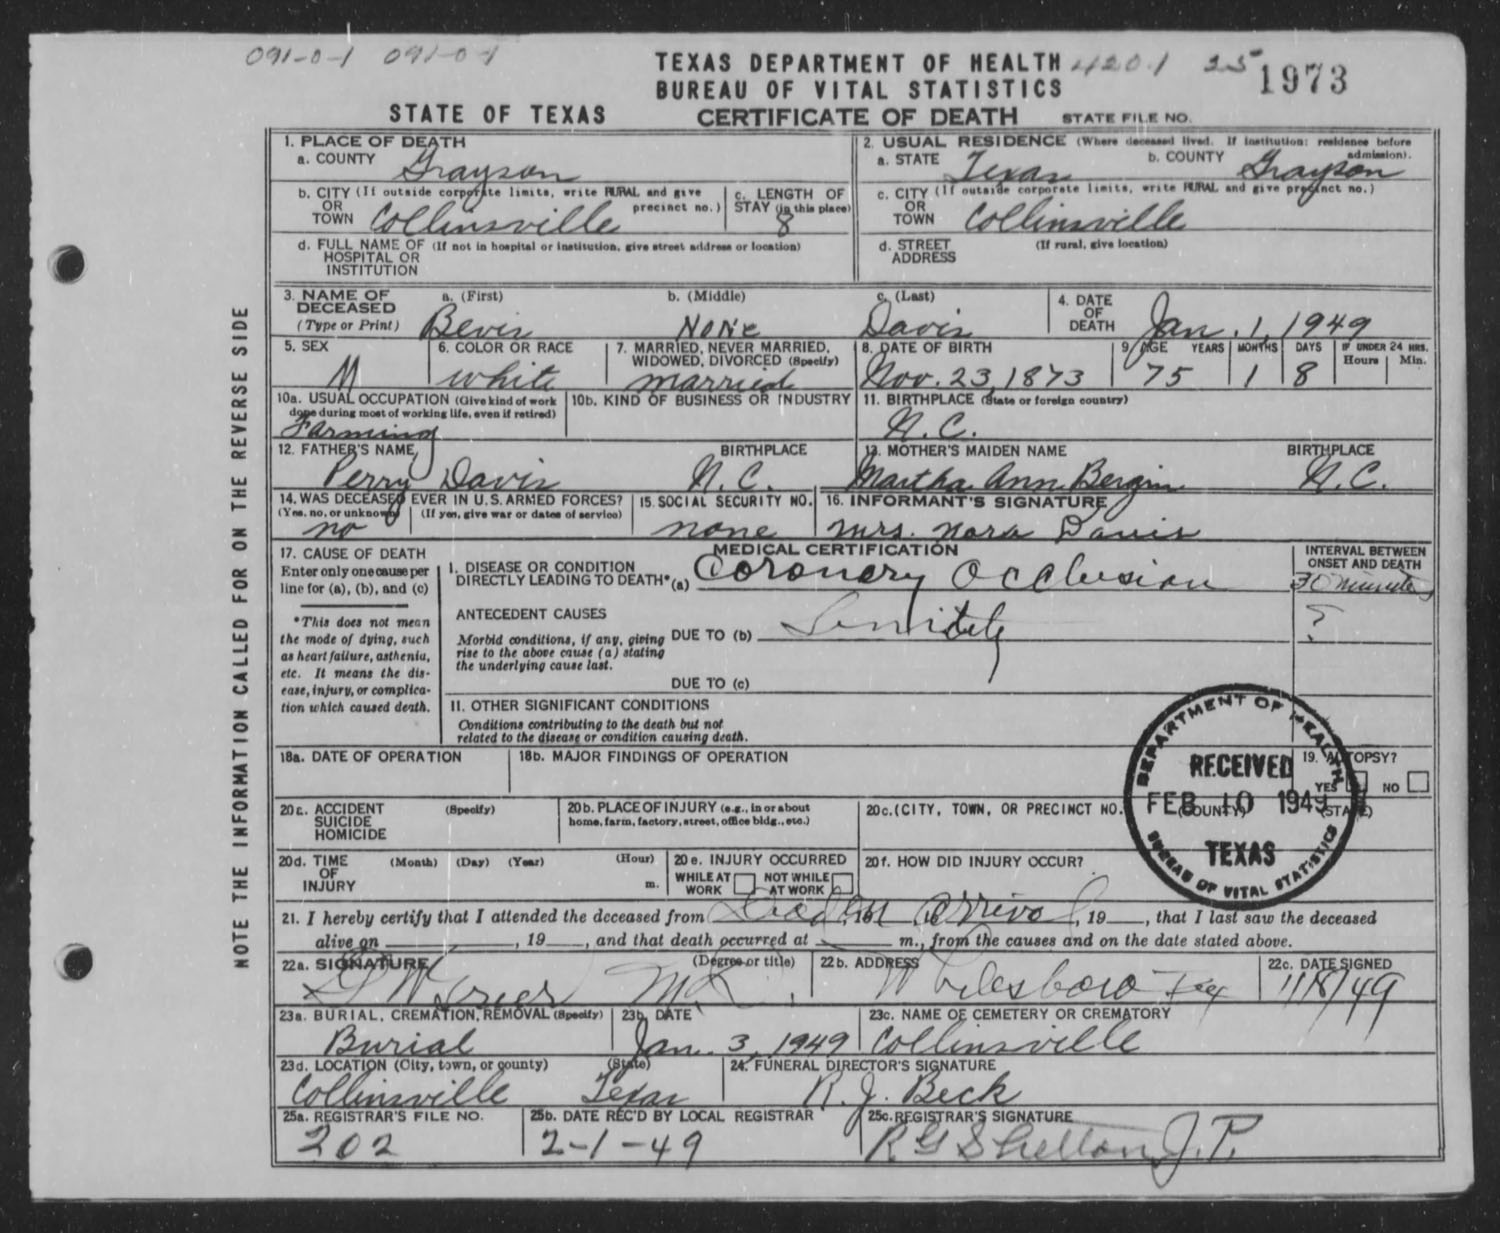 091-0-1 091-0-1
TEXAS DEPARTMENT OF HEALTH 4201 25 1973
BUREAU OF VITAL STATISTICS
STATE OF TEXAS CERTIFICATE OF DEATH STATE FILE NO.
NOTE THE INFORMATION CALLED FOR ON THE REVERSE SIDE
1. PLACE OF DEATH
a. COUNTY Grayson
2. USUAL RESIDENCE (Where deceased lived. If institution: residence before admission).
a. STATE Texas b. COUNTY Grayson
b. CITY (If outside corporate limits, write RURAL and give precinct no.)
OR
TOWN Collinsville
c. LENGTH OF
STAY (in this place)
8
c. CITY (If outside corporate limits, write RURAL and give precinct no.)
OR
TOWN Collinsville
d. FULL NAME OF (If not in hospital or institution, give street address or location)
HOSPITAL OR
INSTITUTION
d. STREET (If rural, give location)
ADDRESS
3. NAME OF
DECEASED
(Type or Print)
a. (First) b. (Middle) c. (Last)
Bevis None Davis
4. DATE
OF
DEATH Jan. 1, 1949
5. SEX
M
6. COLOR OR RACE
white
7. MARRIED, NEVER MARRIED,
WIDOWED, DIVORCED (Specify)
married
8. DATE OF BIRTH
Nov. 23, 1873
9. AGE YEARS MONTHS DAYS IF UNDER 24 HRS.
Hours Min.
75 1 8
10a. USUAL OCCUPATION (Give kind of work
done during most of working life, even if retired)
Farming
10b. KIND OF BUSINESS OR INDUSTRY
11. BIRTHPLACE (State or foreign country)
N.C.
12. FATHER'S NAME BIRTHPLACE
Perry Davis N.C.
13. MOTHER'S MAIDEN NAME BIRTHPLACE
Martha Ann N.C.
14. WAS DECEASED EVER IN U.S. ARMED FORCES?
(Yes, no, or unknown) (If yes, give war or dates of service)
no
15. SOCIAL SECURITY NO.
none
16. INFORMANT'S SIGNATURE
Mrs. Nora Davis
17. CAUSE OF DEATH
Enter only one cause per
line for (a), (b), and (c)
*This does not mean
the mode of dying, such
as heart failure, asthenia,
etc. It means the dis-
ease, injury, or complica-
tion which caused death.
MEDICAL CERTIFICATION
I. DISEASE OR CONDITION
DIRECTLY LEADING TO DEATH* (a) Coronary Occlusion
INTERVAL BETWEEN
ONSET AND DEATH
30 minutes
ANTECEDENT CAUSES
Morbid conditions, if any, giving
rise to the above cause (a) stating
the underlying cause last.
DUE TO (b) Senility ?
DUE TO (c)
II. OTHER SIGNIFICANT CONDITIONS
Conditions contributing to the death but not
related to the disease or condition causing death.
18a. DATE OF OPERATION
18b. MAJOR FINDINGS OF OPERATION
19. AUTOPSY?
YES NO
DEPARTMENT OF HEALTH
RECEIVED
FEB 10 1949
TEXAS
BUREAU OF VITAL STATISTICS
20c. ACCIDENT (Specify)
SUICIDE
HOMICIDE
20b. PLACE OF INJURY (e.g., in or about
home, farm, factory, street, office bldg., etc.)
20c. (CITY, TOWN, OR PRECINCT NO. (COUNTY) (STATE)
20d. TIME (Month) (Day) (Year) (Hour)
OF
INJURY m.
20e. INJURY OCCURRED
WHILE AT NOT WHILE
WORK AT WORK
20f. HOW DID INJURY OCCUR?
21. I hereby certify that I attended the deceased from Dead on arrival, 19, that I last saw the deceased
alive on , 19 , and that death occurred at m., from the causes and on the date stated above.
22a. SIGNATURE (Degree or title)
M.D.
22b. ADDRESS
Whitesboro Tex
22c. DATE SIGNED
1/8/49
23a. BURIAL, CREMATION, REMOVAL (Specify)
Burial
23b. DATE
Jan. 3, 1949
23c. NAME OF CEMETERY OR CREMATORY
Collinsville
23d. LOCATION (City, town, or county) (State)
Collinsville Texas
24. FUNERAL DIRECTOR'S SIGNATURE
R. J. Beck
25a. REGISTRAR'S FILE NO.
202
25b. DATE REC'D BY LOCAL REGISTRAR
2-1-49
25c. REGISTRAR'S SIGNATURE
R G Shelton J.P.